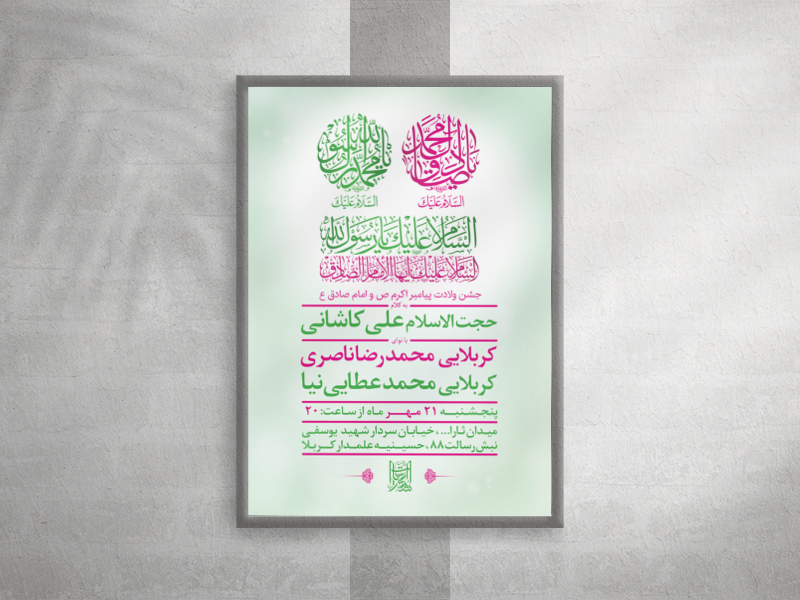 یا صادق آل محمد
یا محمد رسول الله
السلام علیک
السلام علیک
السلام علیک یا رسول الله
السلام علیک یا ایها الامام الصادق
جشن ولادت پیامبر اکرم ص و امام صادق ع
به کلام
حجت‌الاسلام علی کاشانی
با نوای
کربلایی محمدرضا ناصری
کربلایی محمد عطایی‌نیا
پنجشنبه ۲۱ مهر ماه از ساعت: ۲۰
میدان ثارا...، خیابان سردار شهید یوسفی
نبش رسالت ۸۸، حسینیه علمدار کربلا